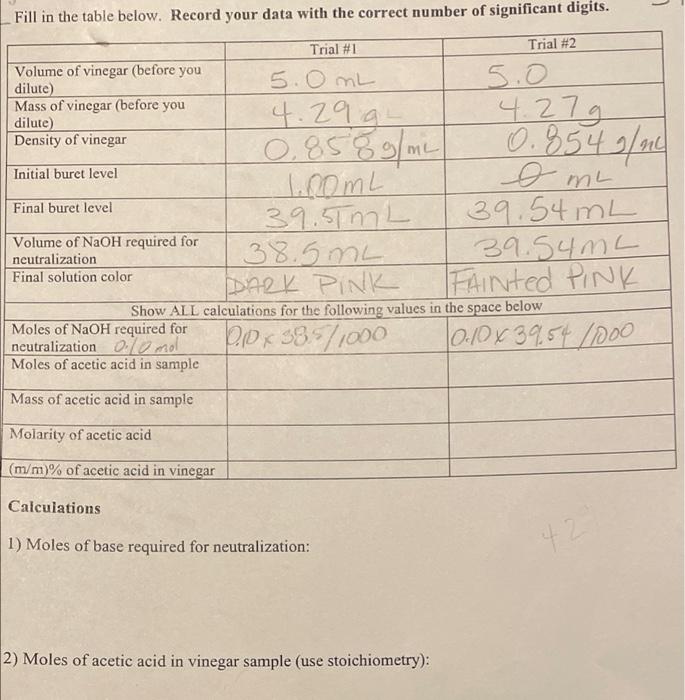 Fill in the table below. Record your data with the correct number of significant digits.
Trial #1 Trial #2
Volume of vinegar (before you dilute) 5.0 mL 5.0
Mass of vinegar (before you dilute) 4.29 g 4.27g
Density of vinegar 0.858g/mL 0.854 g/mL
Initial buret level 1.00mL 0 mL
Final buret level 39.51mL 39.54mL
Volume of NaOH required for neutralization 38.5mL 39.54mL
Final solution color DARK PINK FAINted PINK
Show ALL calculations for the following values in the space below
Moles of NaOH required for neutralization 0.10 mol 0.10 x 38.5/1000 0.10 x 39.54 /1000
Moles of acetic acid in sample
Mass of acetic acid in sample
Molarity of acetic acid
(m/m)% of acetic acid in vinegar
Calculations
42
1) Moles of base required for neutralization:
2) Moles of acetic acid in vinegar sample (use stoichiometry):